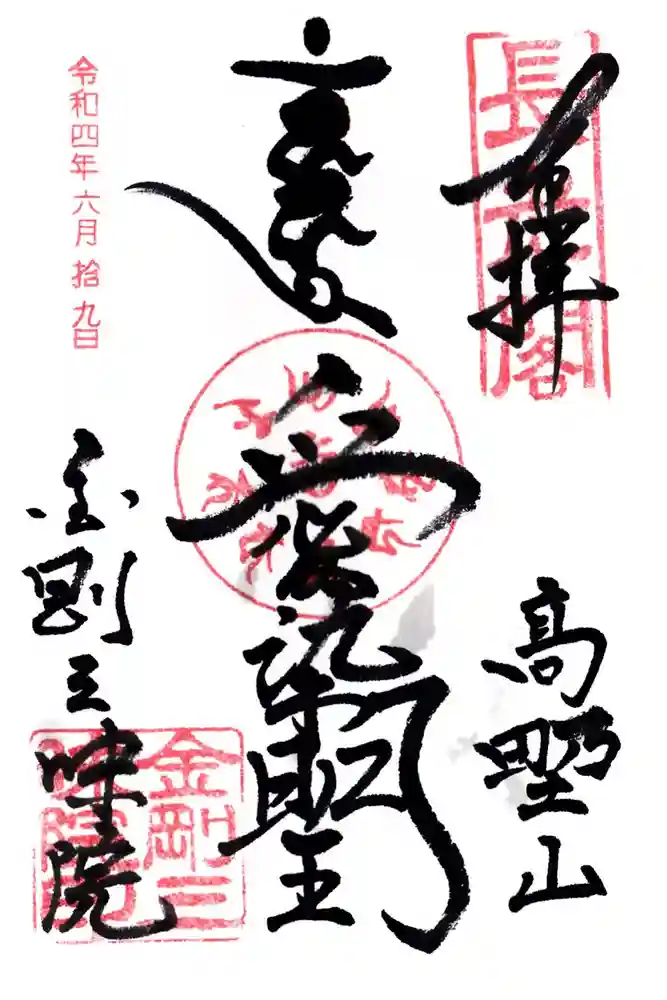 奉拝
長老閣
高野山
愛染明王
金剛三昧院
金剛三昧院
令和四年六月拾九日